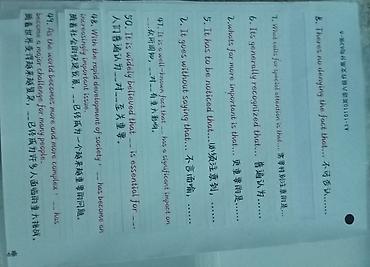 8. There's no denying the fact that... 不可否认......
7. What calls for special attention is that... 需要特别注意的是...
6. Its generally recognized that... 普遍认为......
whats far more important is that... 更重要的是...
5. It has to be noticed that... 必须注意到,......
It goes without saying that... 不言而喻,......
47. It is a well-known fact that __ has a significant impact on __.
众所周知, __对__有重大影响。
50. It is widely believed that __ is essential for __.
人们普遍认为__对__至关重要。
48. With the rapid development of society, __ has become an
increasingly important issue.
随着社会的快速发展, __已经成为一个越来越重要的问题。
49. As the world becomes more and more complex, __ has
become a major challenge for many people.
随着世界变得越来越复杂, __已经成为许多人面临的重大挑战。